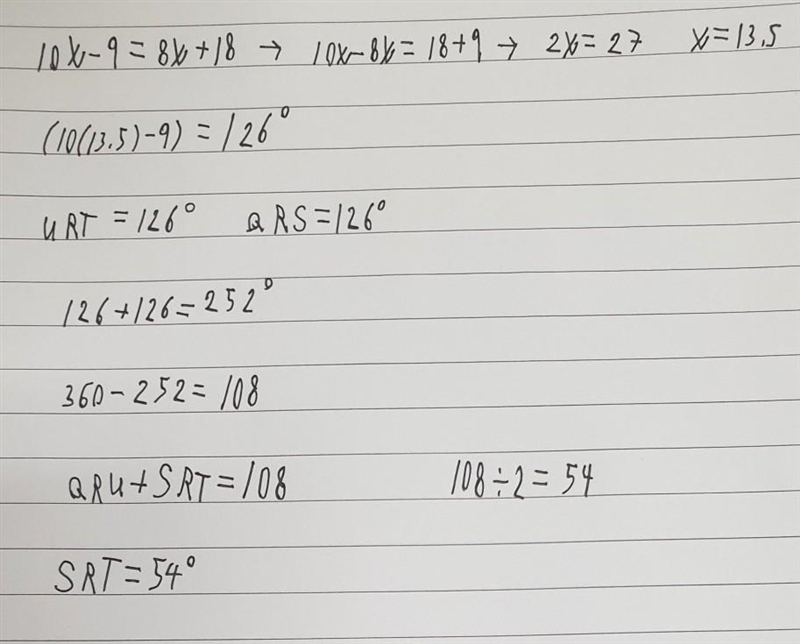 10x-9=8x+18 → 10x-8x=18+9 → 2x=27 x=13.5
(10(13.5)-9)=126°
URT=126° QRS=126°
126+126=252°
360-252=108
QRU+SRT=108 108÷2=54
SRT=54°